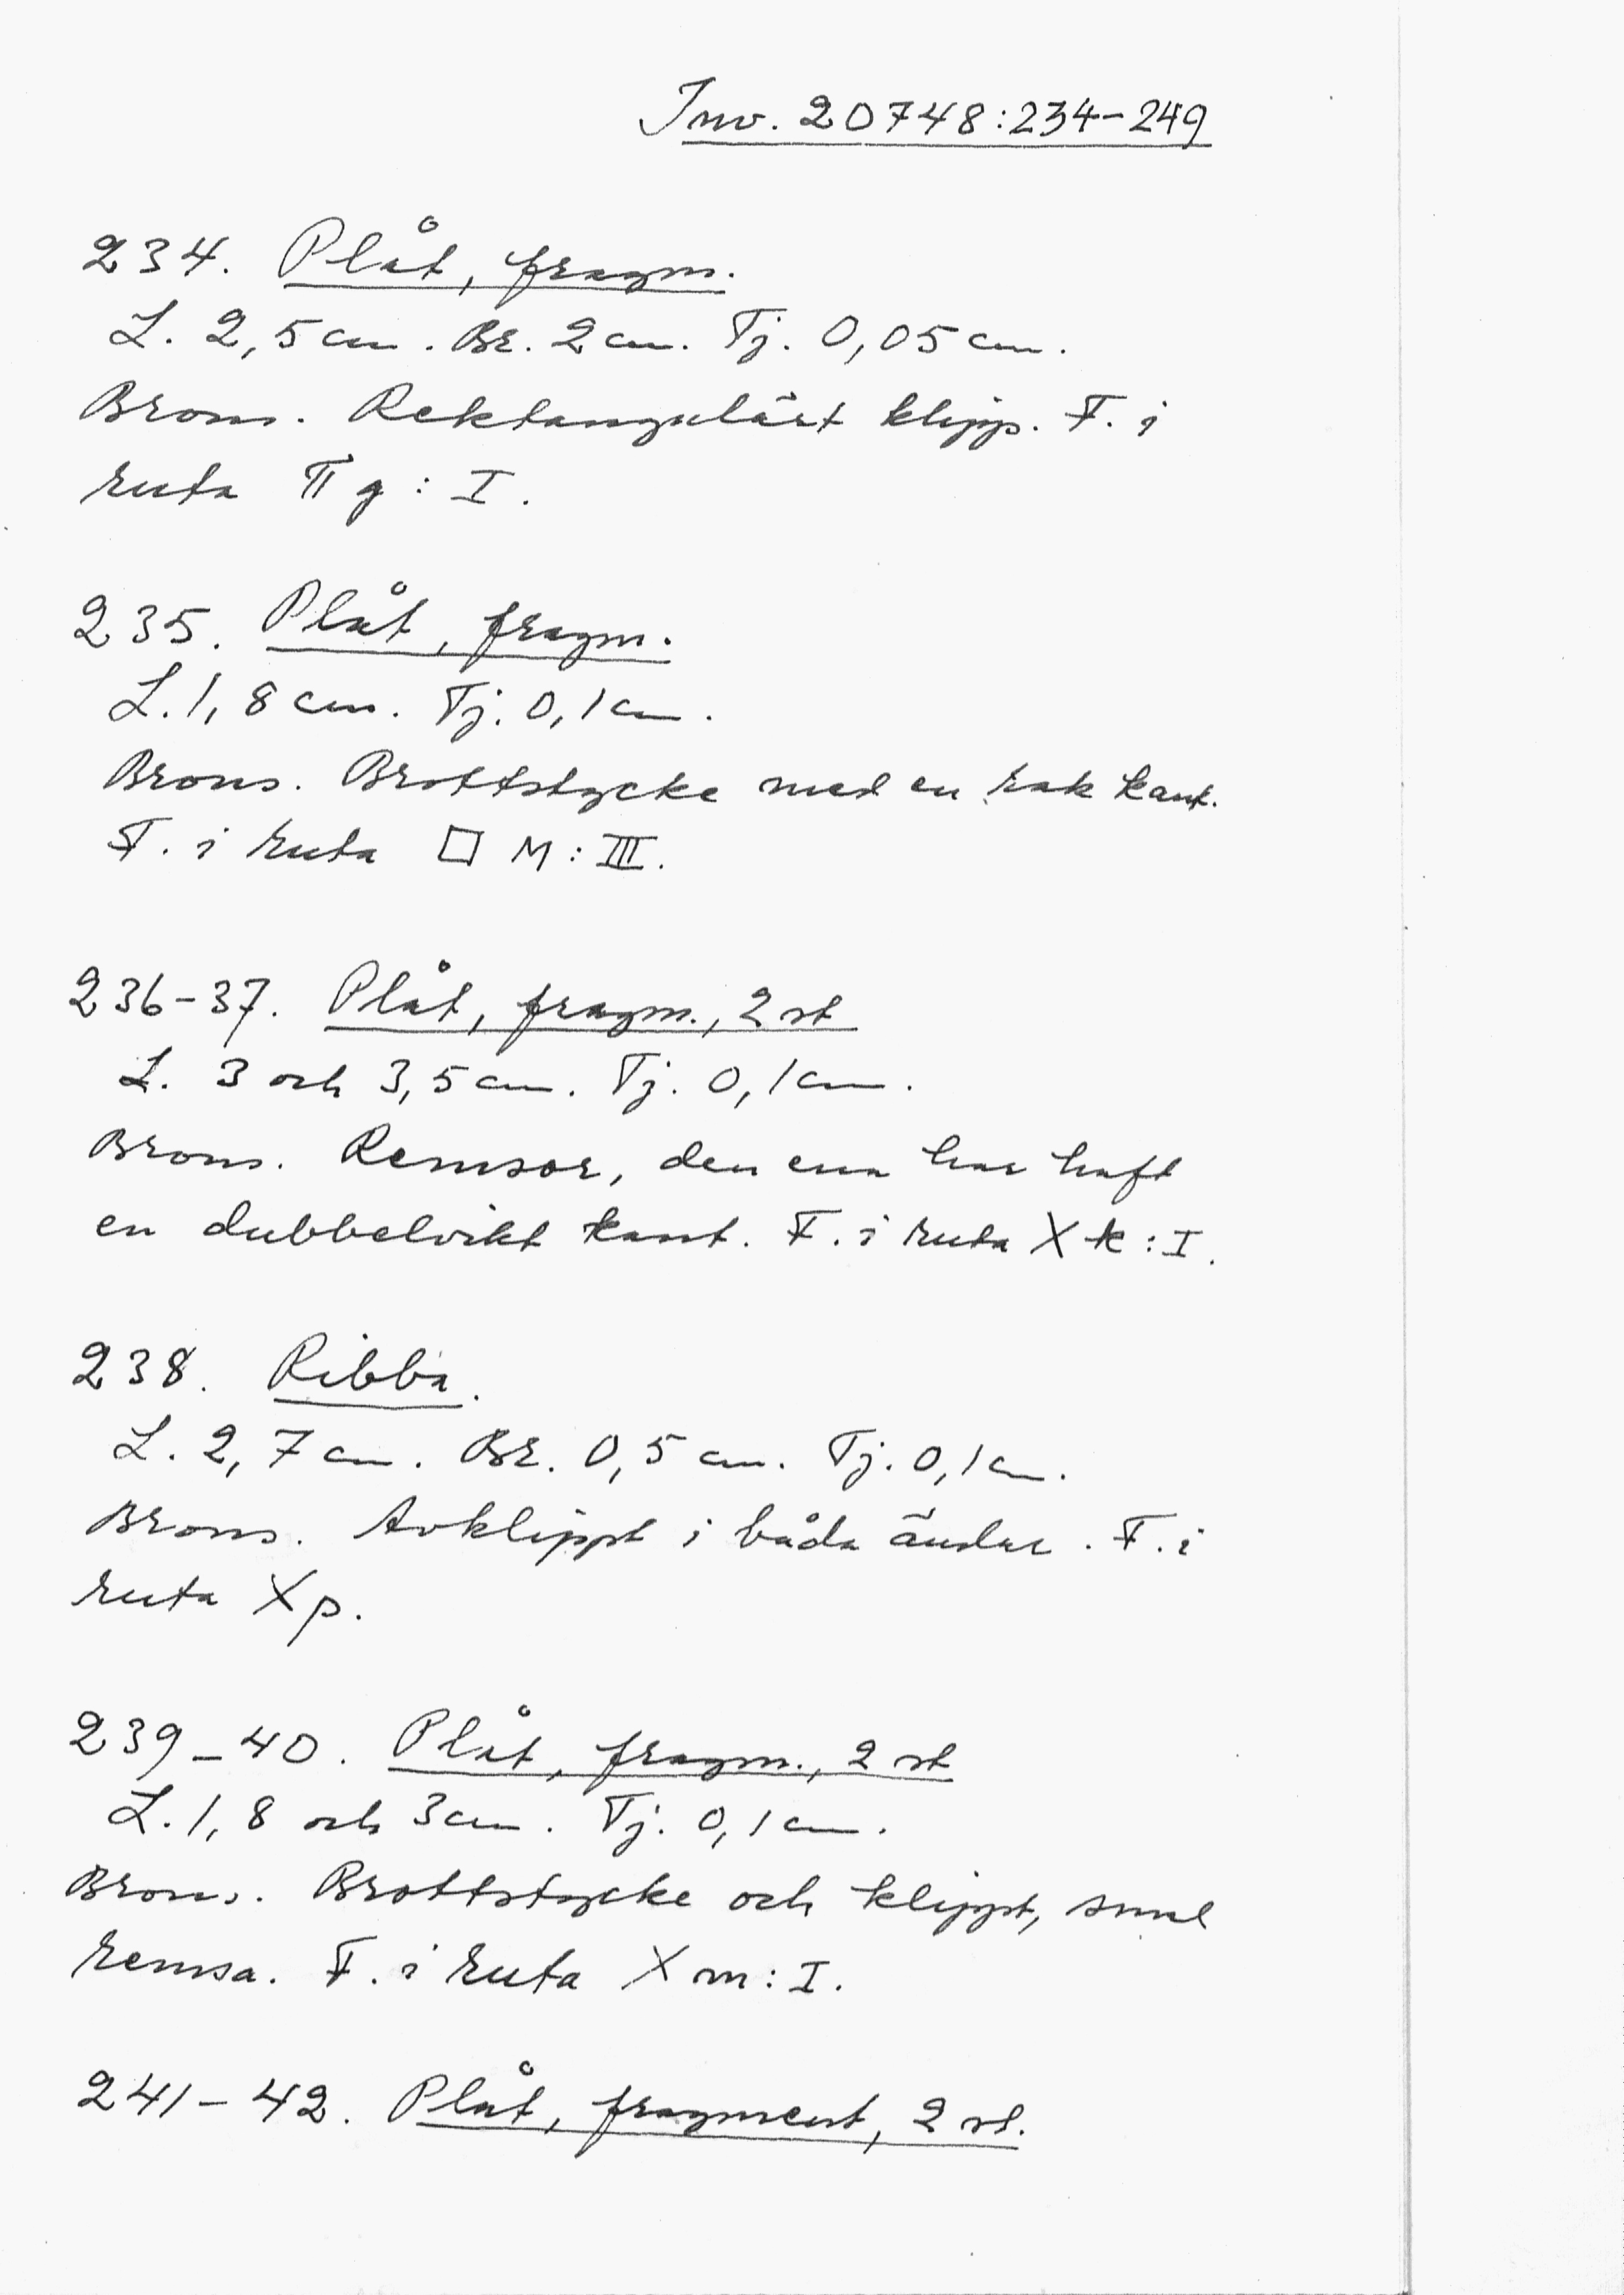 Inv. 20748:234-249
234. Plåt, fragm.
L. 2,5 cm. Br. 2 cm. Tj. 0,05 cm.
Brons. Rektangulärt klipp. F. i
ruta π g : I.
235. Plåt, fragm.
L. 1,8 cm. Tj. 0,1 cm.
Brons. Brottstycke med en rak kant.
F. i ruta □ M : III.
236-37. Plåt, fragm., 2 st
L. 3 och 3,5 cm. Tj. 0,1 cm.
Brons. Remsor, den ena har haft
en dubbelvikt kant. F. i ruta X k : I.
238. Ribba.
L. 2,7 cm. Br. 0,5 cm. Tj. 0,1 cm.
Brons. Avklippt i båda ändar. F. i
ruta X p.
239-40. Plåt, fragm., 2 st
L. 1,8 och 3 cm. Tj. 0,1 cm.
Brons. Brottstycke och klippt, smal
remsa. F. i ruta X m : I.
241-42. Plåt, fragment, 2 st.